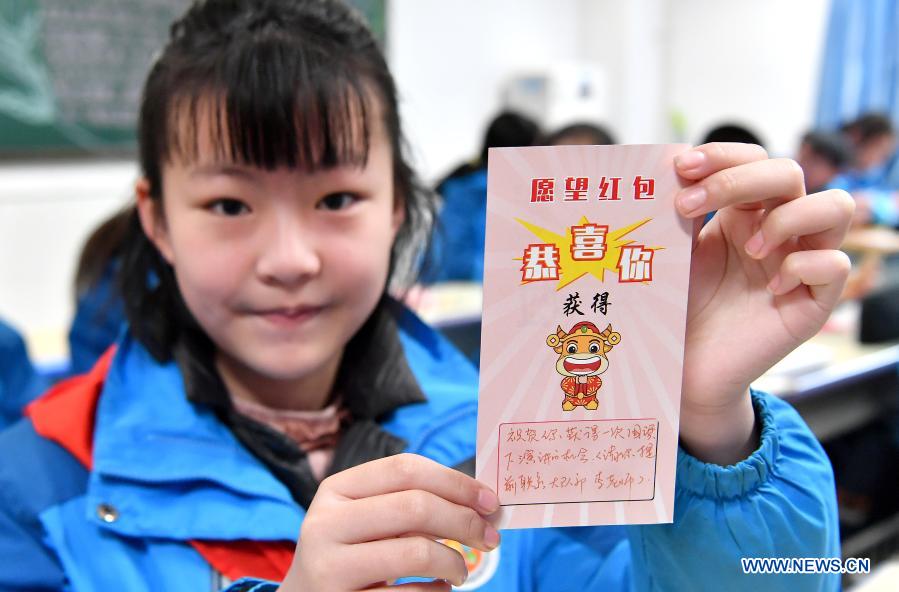 愿望红包
恭喜你
获得
祝贺你,获得一次国旗
下演讲的机会。(请你提
前联系大队部 李老师)。
WWW.NEWS.CN